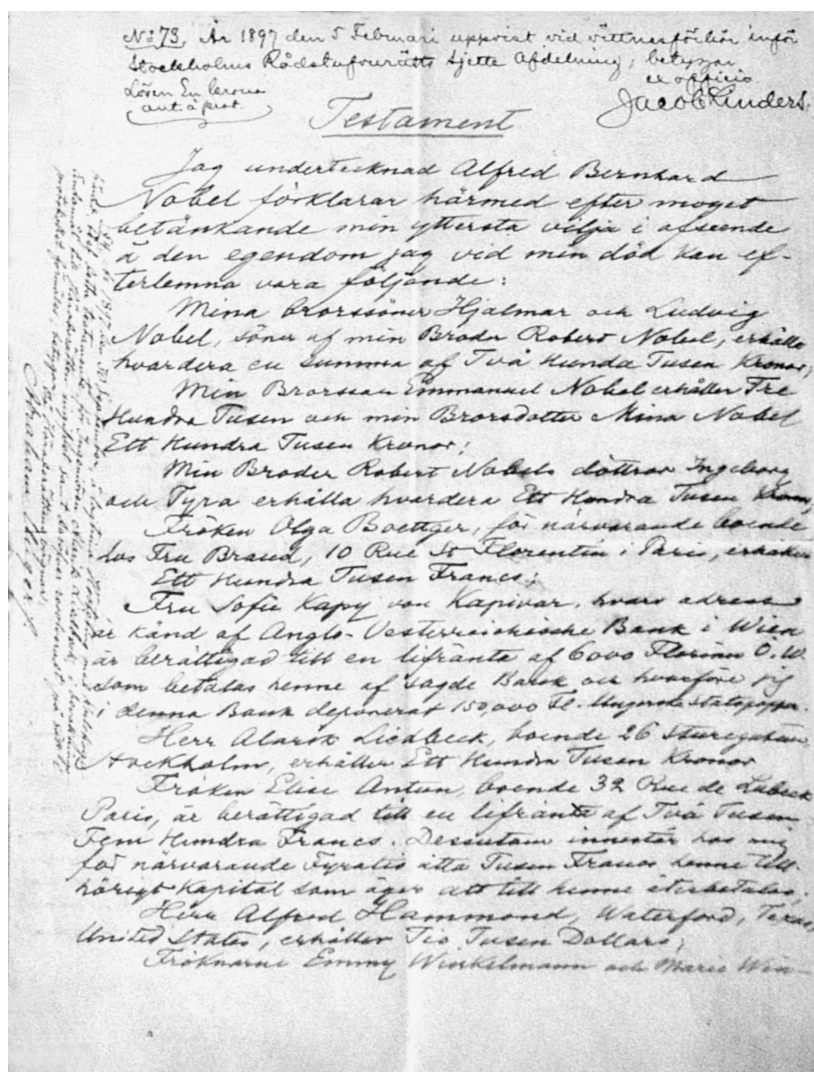 No 73. År 1897 den 5 Februari uppvist vid vittnesförhör inför
Stockholms Rådstufvurätts sjette Afdelning; betygar
Lösen En krona
ex officio
ant. i prot.
Testament
Jag undertecknad Alfred Bernhard
Nobel förklarar härmed efter moget
betänkande min yttersta vilja i afseende
å den egendom jag vid min död kan ef-
terlemna vara följande:
Mina Brorssöner Hjalmar och Ludvig
Nobel, söner af min Broder Robert Nobel, erhålla
hvardera en summa af Två Hundra Tusen Kronor;
Min Brorsson Emmanuel Nobel erhåller Tre
Hundra Tusen och min Brorsdotter Mina Nobel
Ett Hundra Tusen Kronor;
Min Broder Robert Nobels döttrar Ingeborg
och Tyra erhålla hvardera Ett Hundra Tusen Kronor;
Fröken Olga Boettger, för närvarande boende
hos Fru Brand, 10 Rue St Florentin i Paris, erhåller
Ett Hundra Tusen Francs;
Fru Sofie Kapy von Kapivar, hvars adress
är känd af Anglo-Oesterreichische Bank i Wien
är berättigad till en lifränta af 6000 Florins Ö.W.
som betalas henne af sagde Bank och hvarföre jag
i denna Bank deponerat 150,000 Fl. i Ungerska Statspapper.
Herr Alarik Liedbeck, boende 26 Sturegatan,
Stockholm, erhåller Ett Hundra Tusen Kronor
Fröken Elise Antun, boende 32 Rue de Lubeck
Paris, är berättigad till en lifränta af Två Tusen
Fem Hundra Francs. Dessutom innestår hos mig
för närvarande Fyratio åtta Tusen Francs henne till-
hörigt kapital som äger att till henne återbetalas;
Herr Alfred Hammond, Waterford, Texas,
United States, erhåller Tio Tusen Dollars;
Fröknarne Emmy Winkelmann och Marie Win-